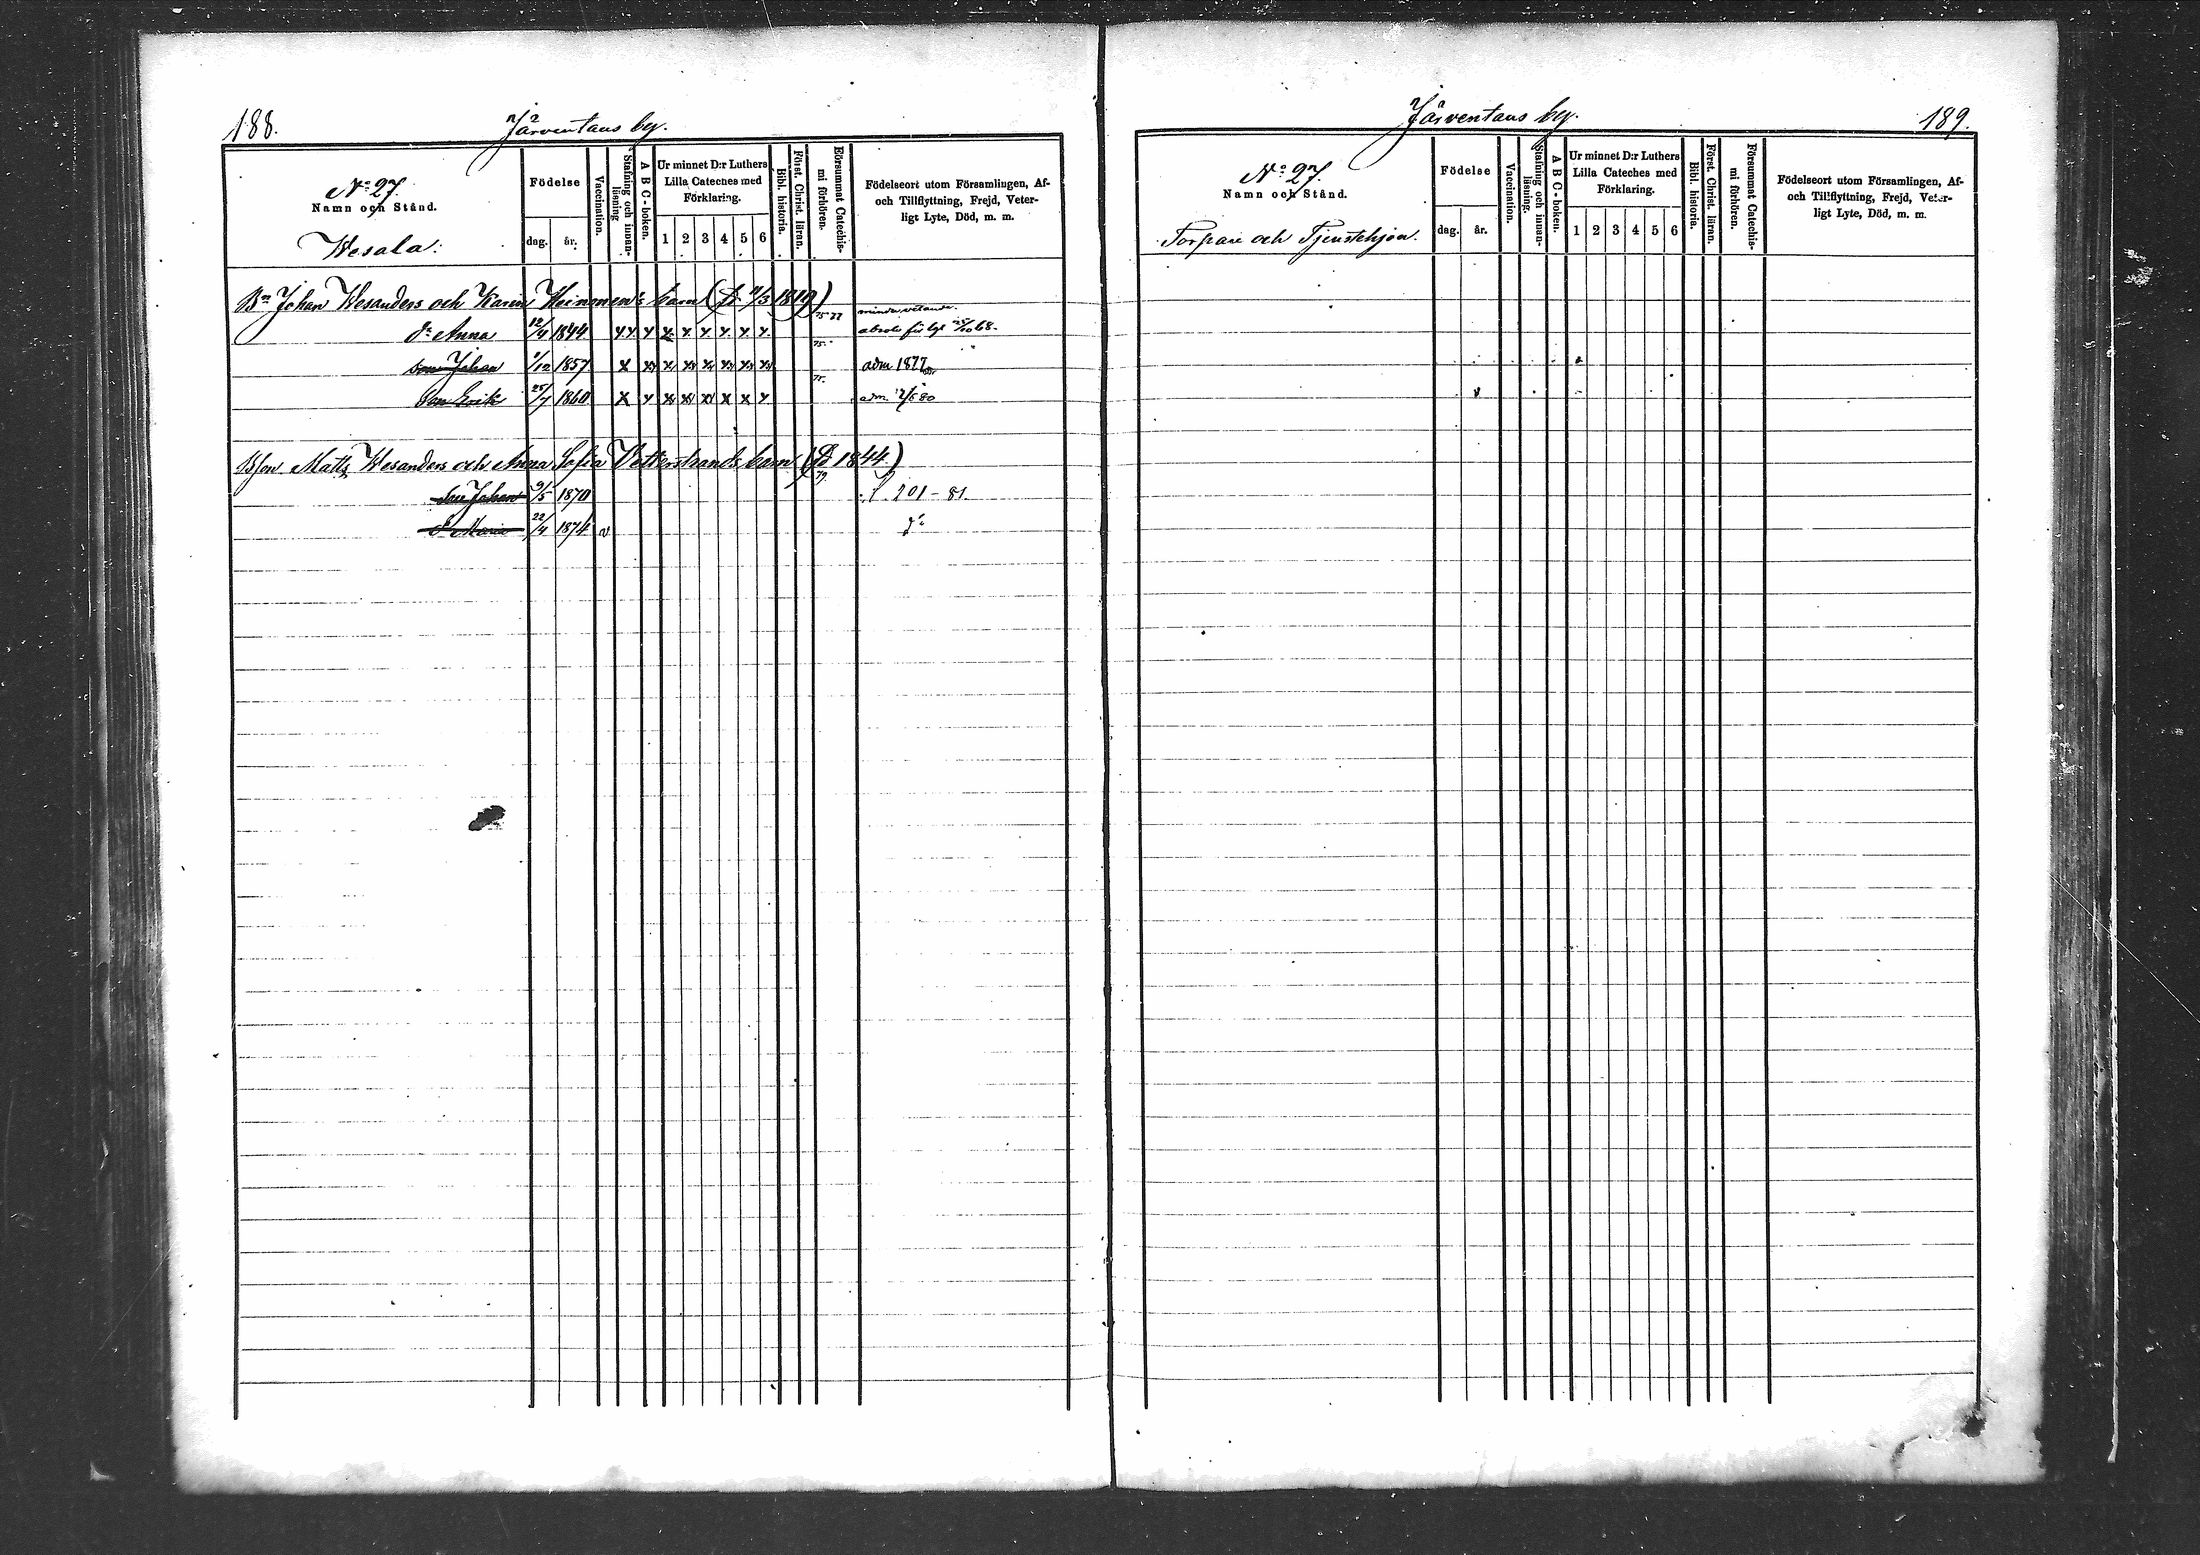 188.
Järventaus by.
No 27.
Namn och Stånd.
Wesala.
Födelse
dag.
år.
Vaccination.
Stafning och innan-
läsning
A B C-boken.
Ur minnet D:r Luthers
Lilla Cateches med
Förklaring.
1 2 3 4 5 6
Bibl. historia.
Först. Christ. läran.
Försummat Catechis-
mi förhören.
Födelseort utom Församlingen, Af-
och Tillflyttning, Frejd, Veter-
ligt Lyte, Död, m. m.
Bn Johan Wesanders och Karin Heinonen's barn (fr 11/3 1819)
dr Anna 12/4 1844 x x y x x x x x x 75 77 mindre vetande.
absolv för lgl 25/10 68.
son Johan 1/12 1857 x x x x x x x x 75. adm 1877
son Erik 25/7 1860 x y x x x x x y 75. adm 2/5 80
Bson Matts Wesanders och Anna Sofia Vetterstrands barn (fd 1844)
son Johan 9/5 1870 79. f. 201-81.
dr Maria 22/4 1874 v do
Järventaus by.
189.
No 27.
Namn och Stånd.
Torpare och Tjenstehjon.
Födelse
dag.
år.
Vaccination.
Stafning och innan-
läsning.
A B C-boken.
Ur minnet D:r Luthers
Lilla Cateches med
Förklaring.
1 2 3 4 5 6
Bibl. historia.
Först. Christ. läran.
Försummat Catechis-
mi förhören.
Födelseort utom Församlingen, Af-
och Tillflyttning, Frejd, Veter-
ligt Lyte, Död, m. m.